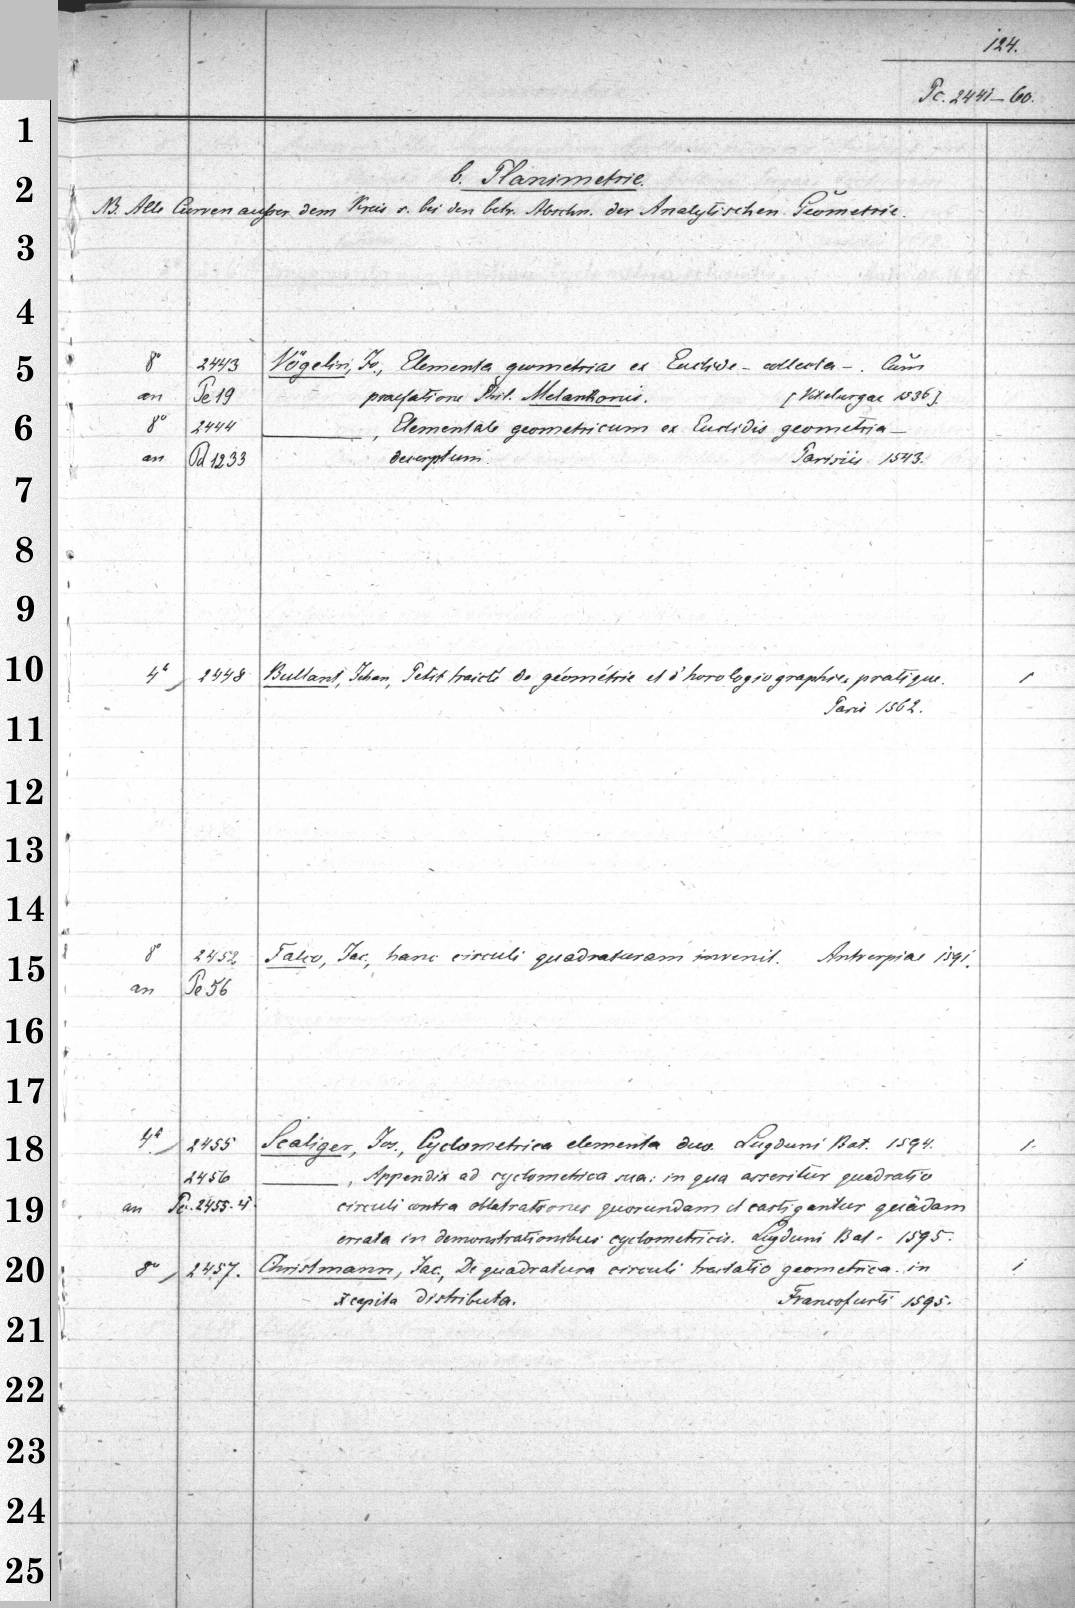 124.
Pc. 2441-60.
1
2 b. Planimetrie.
NB. Alle Curven außer dem Kreis s. bei den betr. Abschn. der Analytischen Geometrie.
3
4
5 8° 2443 Vögelin, Jo., Elementa geometriae ex Euclide - collecta -. Cum
an Pe 19 praefatione Phil. Melanthonis. [Vitebergae 1536].
6 8° 2444 ———, Elementale geometricum ex Euclidis geometria -
an Pd 1233 decerptum. Parisiis 1543.
7
8
9
10 4° 2448 Bullant, Jehan, Petit traicté de géométrie et d'horologiographie pratique. 1
Paris 1562.
11
12
13
14
15 8° 2452 Falco, Jac., hanc circuli quadraturam invenit. Antverpiae 1591.
an Pe 56
16
17
18 4° 2455 Scaliger, Jos., Cyclometrica elementa duo. Lugduni Bat. 1594. 1.
2456 ———, Appendix ad cyclometrica sua: in qua asseritur quadratio
19 an Pc. 2455. 4° circuli contra oblatrationes quorundam et castigantur quaedam
errata in demonstrationibus cyclometricis. Lugduni Bat. 1595.
20 8° 2457. Christmann, Jac., De quadratura circuli tractatio geometrica in 1
x capita distributa. Francofurti 1595.
21
22
23
24
25